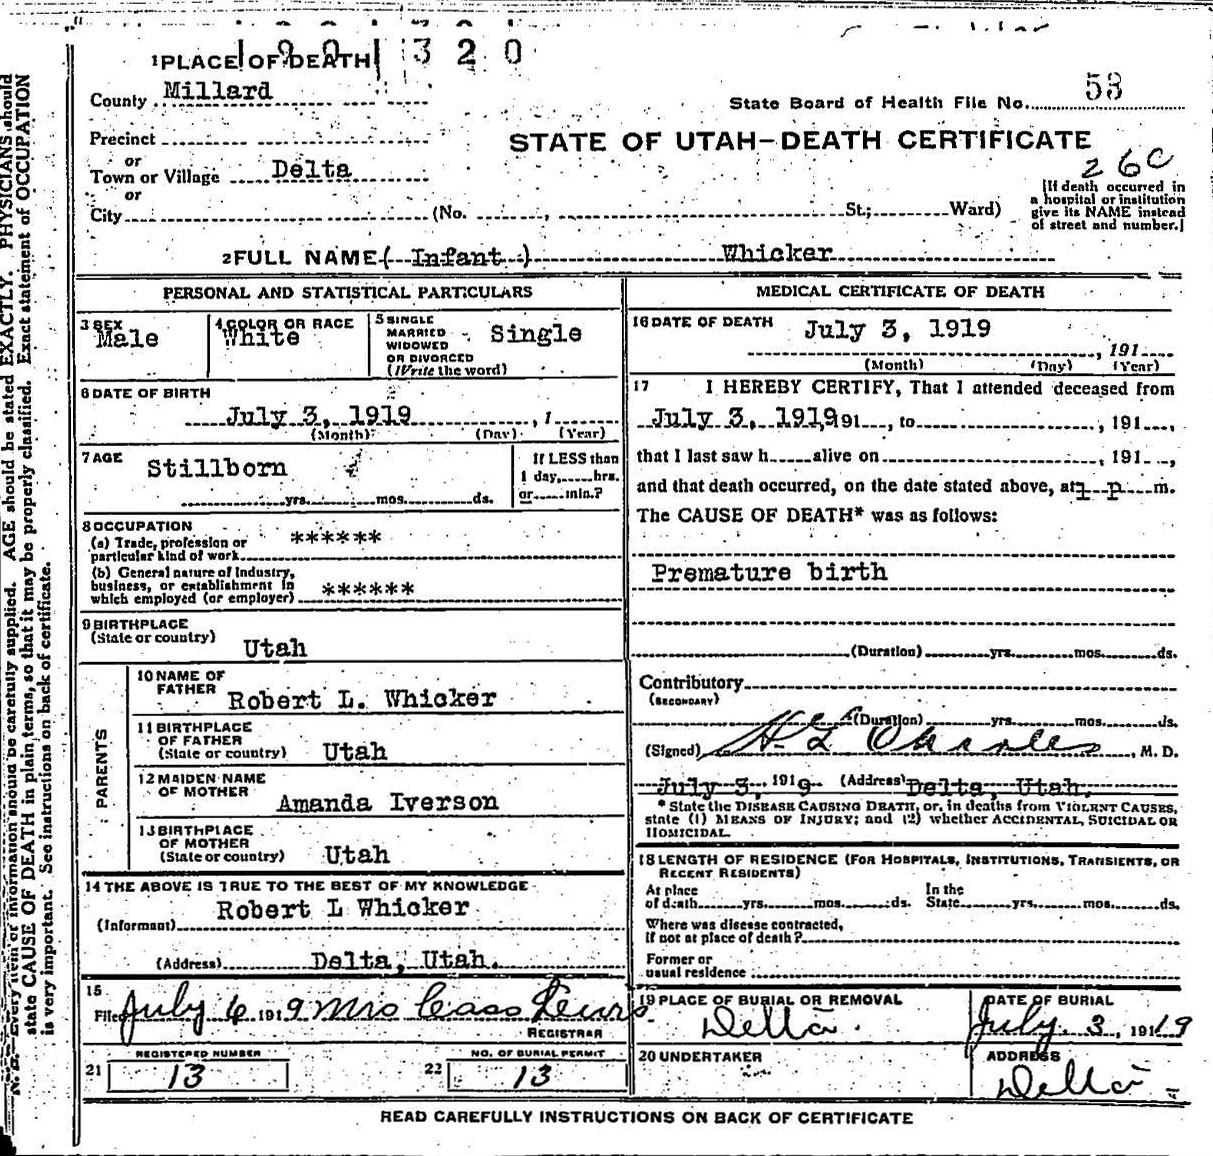 320
1 PLACE OF DEATH
County Millard
State Board of Health File No. 53
Precinct
STATE OF UTAH—DEATH CERTIFICATE
or
26C
Town or Village Delta
or
City (No. , St; Ward)
[If death occurred in
a hospital or institution
give its NAME instead
of street and number.]
2 FULL NAME ( Infant ) Whicker
PERSONAL AND STATISTICAL PARTICULARS
3 SEX Male
4 COLOR OR RACE White
5 SINGLE
MARRIED
WIDOWED
OR DIVORCED
(Write the word) Single
6 DATE OF BIRTH
July 3, 1919 , 1
(Month) (Day) (Year)
7 AGE Stillborn
yrs. mos. ds.
If LESS than
1 day, hrs.
or min.?
8 OCCUPATION
(a) Trade, profession or
particular kind of work ******
(b) General nature of Industry,
business, or establishment in
which employed (or employer) ******
9 BIRTHPLACE
(State or country) Utah
PARENTS
10 NAME OF
FATHER Robert L. Whicker
11 BIRTHPLACE
OF FATHER
(State or country) Utah
12 MAIDEN NAME
OF MOTHER Amanda Iverson
13 BIRTHPLACE
OF MOTHER
(State or country) Utah
14 THE ABOVE IS TRUE TO THE BEST OF MY KNOWLEDGE
(Informant) Robert L Whicker
(Address) Delta, Utah.
15
Filed July 6 1919 Mrs Cass Lewis
REGISTRAR
REGISTERED NUMBER
21 13
NO. OF BURIAL PERMIT
22 13
MEDICAL CERTIFICATE OF DEATH
16 DATE OF DEATH July 3, 1919
, 191
(Month) (Day) (Year)
17 I HEREBY CERTIFY, That I attended deceased from
July 3, 1919 191 , to , 191 ,
that I last saw h alive on , 191 ,
and that death occurred, on the date stated above, at 1 p m.
The CAUSE OF DEATH* was as follows:
Premature birth
(Duration) yrs. mos. ds.
Contributory
(SECONDARY)
(Duration) yrs. mos. ds.
(Signed) , M. D.
July 3, 1919 (Address) Delta, Utah.
* State the DISEASE CAUSING DEATH, or, in deaths from VIOLENT CAUSES,
state (1) MEANS OF INJURY; and (2) whether ACCIDENTAL, SUICIDAL OR
HOMICIDAL.
18 LENGTH OF RESIDENCE (FOR HOSPITALS, INSTITUTIONS, TRANSIENTS, OR
RECENT RESIDENTS)
At place
of death yrs. mos. ds.
In the
State yrs. mos. ds.
Where was disease contracted,
if not at place of death?
Former or
usual residence
19 PLACE OF BURIAL OR REMOVAL
Delta.
DATE OF BURIAL
July 3, 1919
20 UNDERTAKER
ADDRESS
Delta
READ CAREFULLY INSTRUCTIONS ON BACK OF CERTIFICATE
N. B.—Every item of information should be carefully supplied. AGE should be stated EXACTLY. PHYSICIANS should
state CAUSE OF DEATH in plain terms, so that it may be properly classified. Exact statement of OCCUPATION
is very important. See instructions on back of certificate.